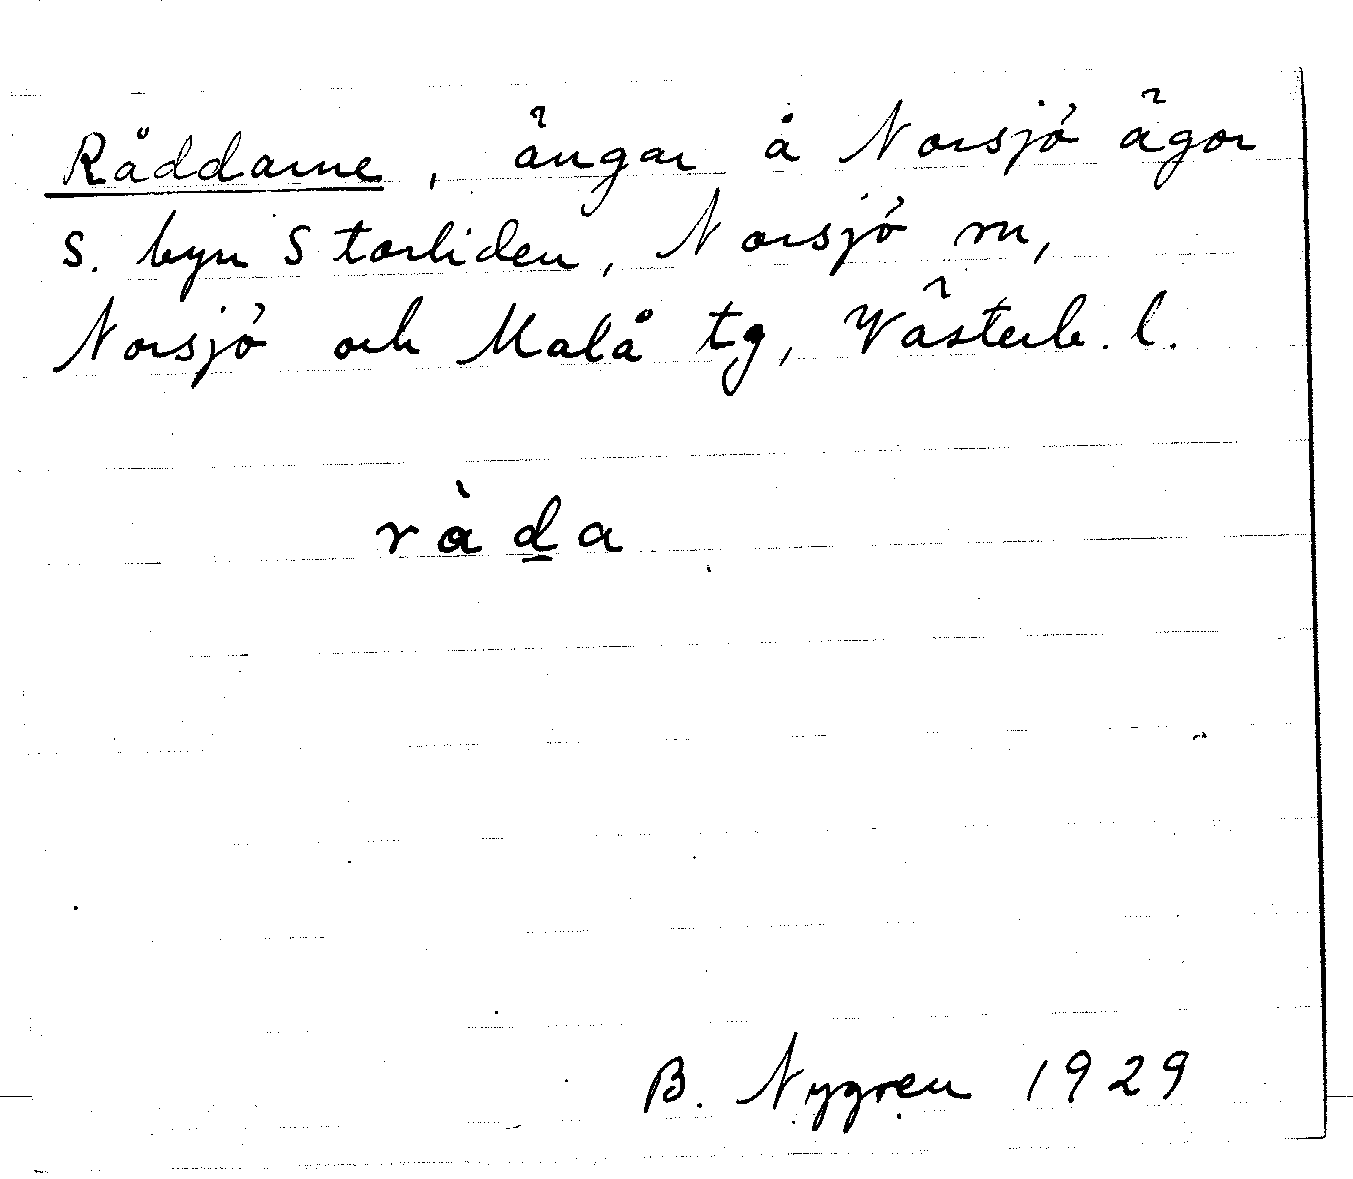 Råddarne, ängar å Norsjö ägor
S. byn Storliden, Norsjö sn,
Norsjö och Malå tg, Västerb. l.
ràḏa
B. Nygren 1929